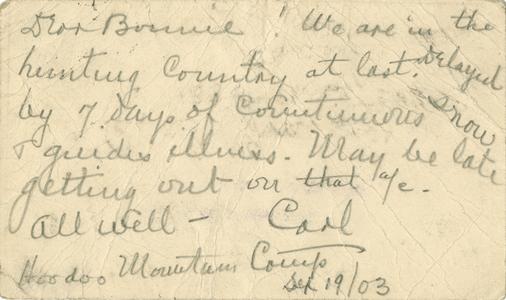 Dear Bonnie! We are in the
hunting Country at last. Delayed
by 7 days of Continuous snow
+ guides illness. May be late
getting out on that a/c.
All well — Carl
Hoodoo Mountain Camp
Sep 19/03